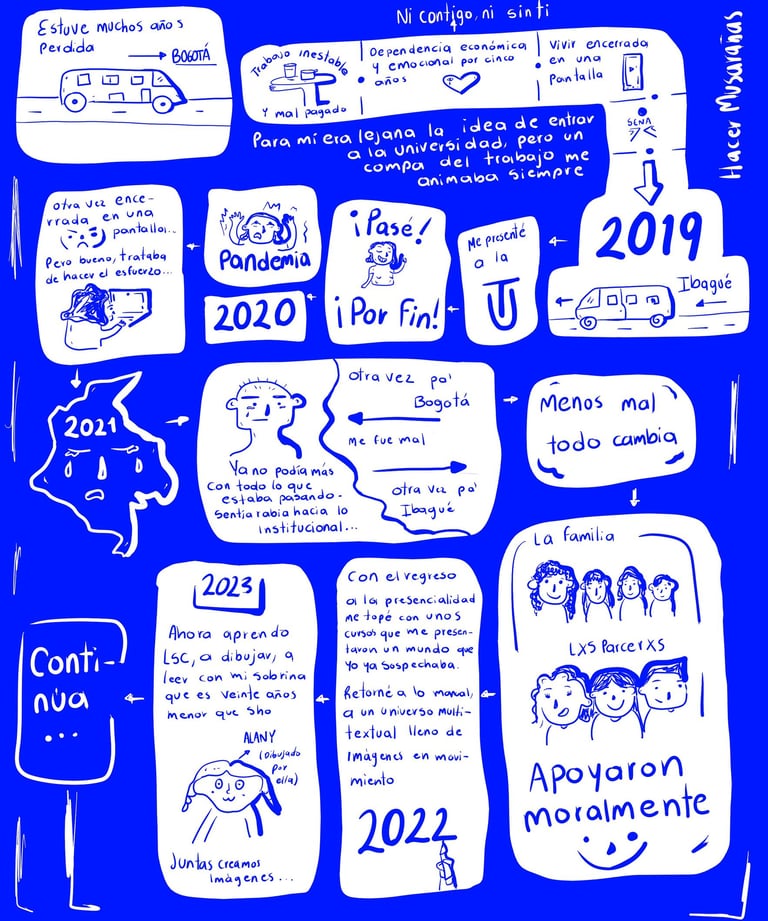 Ni contigo, ni sin ti
Hacer Musarañas
Estuve muchos años
perdida
BOGOTÁ
Trabajo inestable
Y mal pagado
Dependencia económica
y emocional por cinco
años
Vivir encerrada
en una
pantalla
SENA
Para mí era lejana la idea de entrar
a la universidad, pero un
compa del trabajo me
animaba siempre
2019
Ibagué
Me presenté
a la
UT
¡Pasé!
¡Por Fin!
Pandemia
2020
otra vez ence-
rrada en una
pantalla...
Pero bueno, trataba
de hacer el esfuerzo...
2021
Ya no podía más
con todo lo que
estaba pasando.
Sentía rabia hacia lo
institucional...
otra vez pa'
Bogotá
Me fue mal
otra vez pa'
Ibagué
Menos mal
todo cambia
La familia
LXS ParcerXS
Apoyaron
moralmente
Con el regreso
a la presencialidad
me topé con unos
cursos que me presen-
taron un mundo que
yo ya sospechaba.
Retorné a lo manual,
a un universo multi-
textual lleno de
imágenes en movi-
miento
2022
2023
Ahora aprendo
LSC, a dibujar, a
leer con mi sobrina
que es veinte años
menor que sho
ALANY
(Dibujado
por
ella)
Juntas creamos
imágenes...
Conti-
núa
...